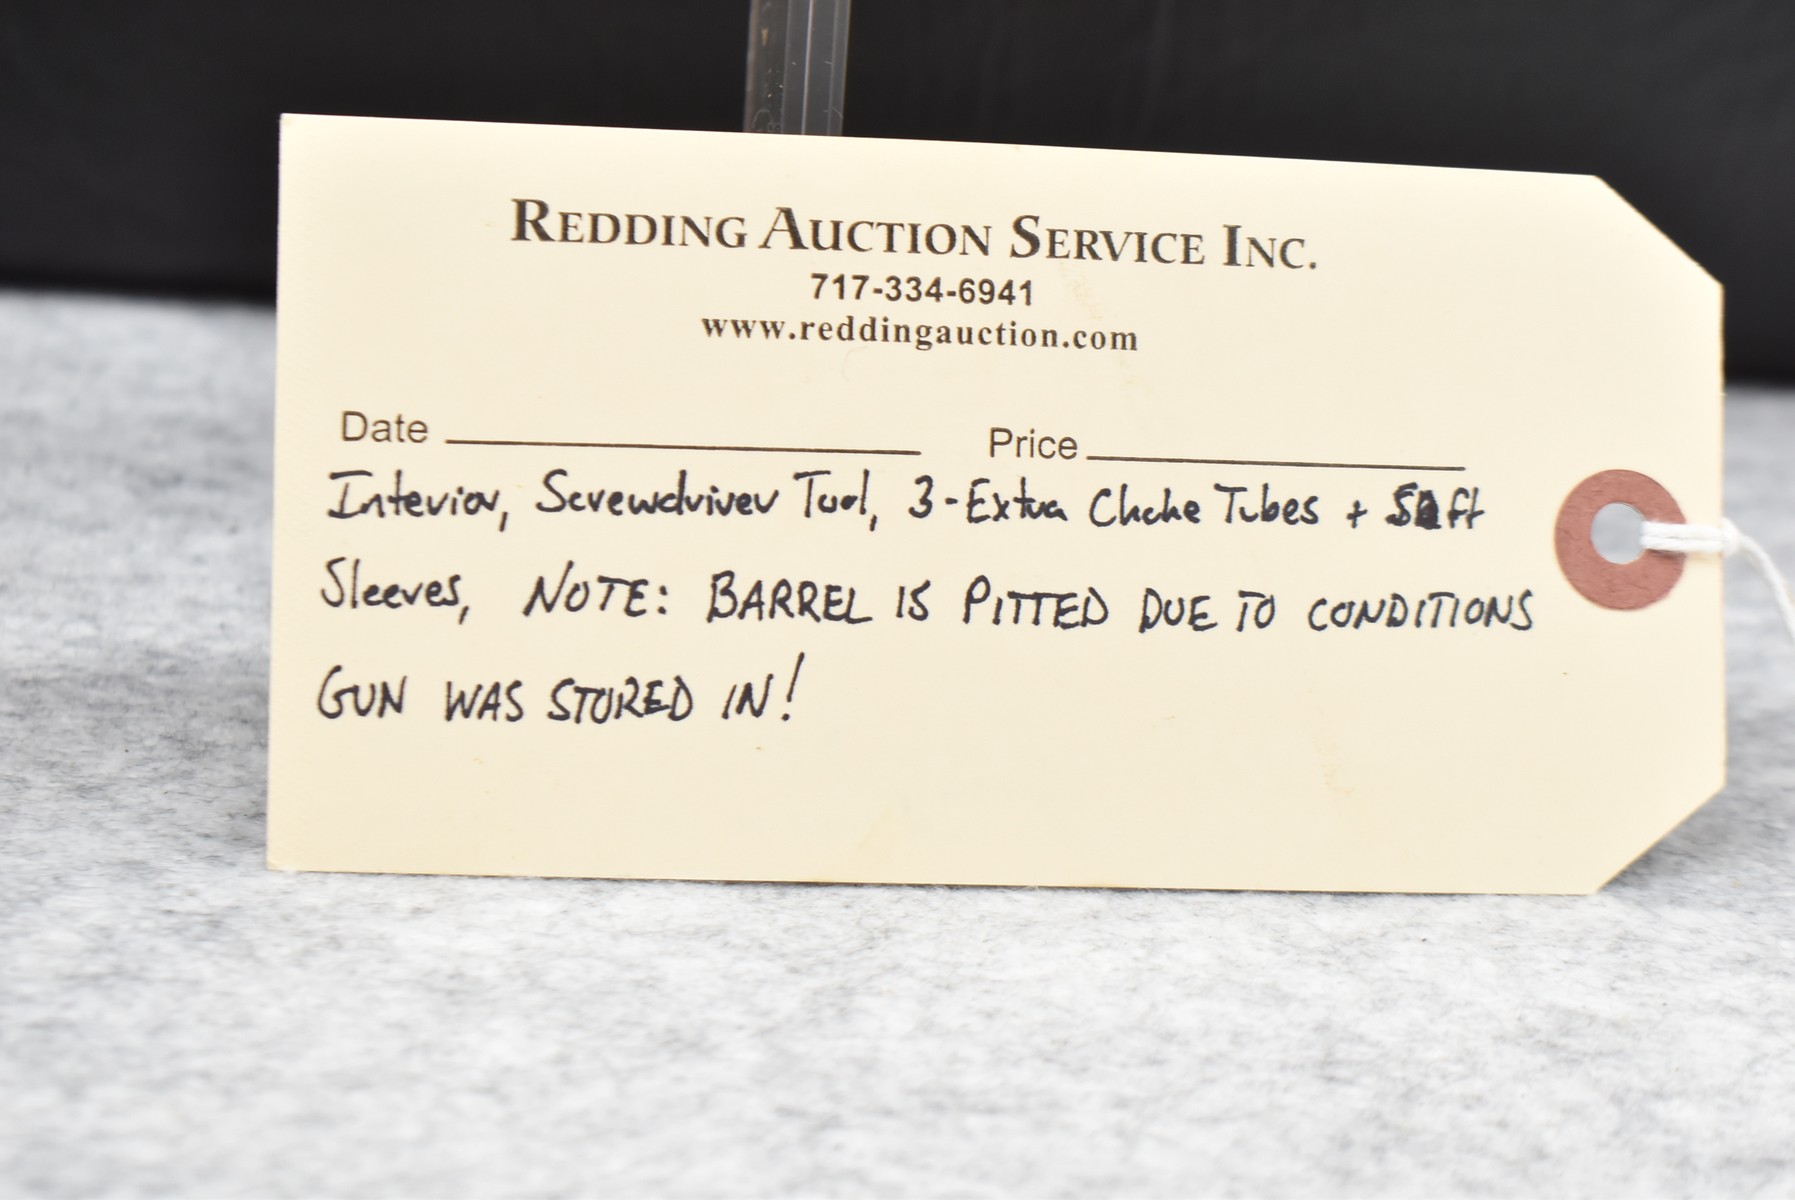 REDDING AUCTION SERVICE INC.
717-334-6941
www.reddingauction.com
Date Price
Interior, Screwdriver Tool, 3-Extra Choke Tubes + Soft
Sleeves, NOTE: BARREL IS PITTED DUE TO CONDITIONS
GUN WAS STORED IN!